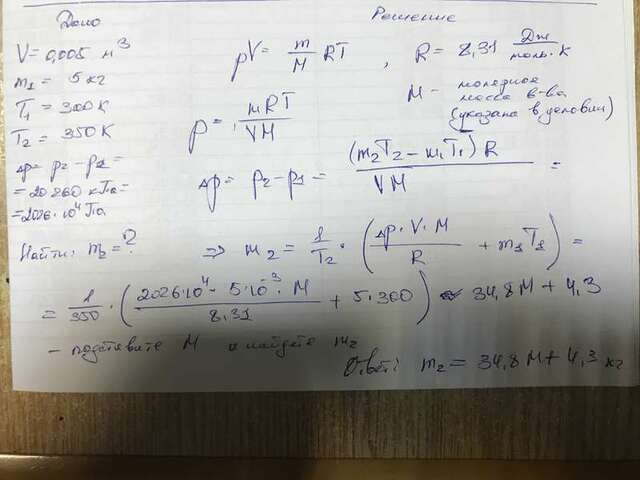 Дано
V = 0,005 м³
m₁ = 5 кг
T₁ = 300 K
T₂ = 350 K
Δp = p₂ - p₁ =
= 20260 кПа =
= 2026·10⁴ Па
Найти: m₂ = ?
Решение
pV = m/M RT , R = 8,31 Дж/моль·К
p = mRT/VM
M - молярная
масса в-ва
(указана в условии)
Δp = p₂ - p₁ = (m₂T₂ - m₁T₁)R / VM =
⇒ m₂ = 1/T₂ · (Δp·V·M/R + m₁T₁) =
= 1/350 · (2026·10⁴ · 5·10⁻³ · M / 8,31 + 5·300) = 34,8M + 4,3
- подставьте M и найдите m₂
Ответ: m₂ = 34,8M + 4,3 кг